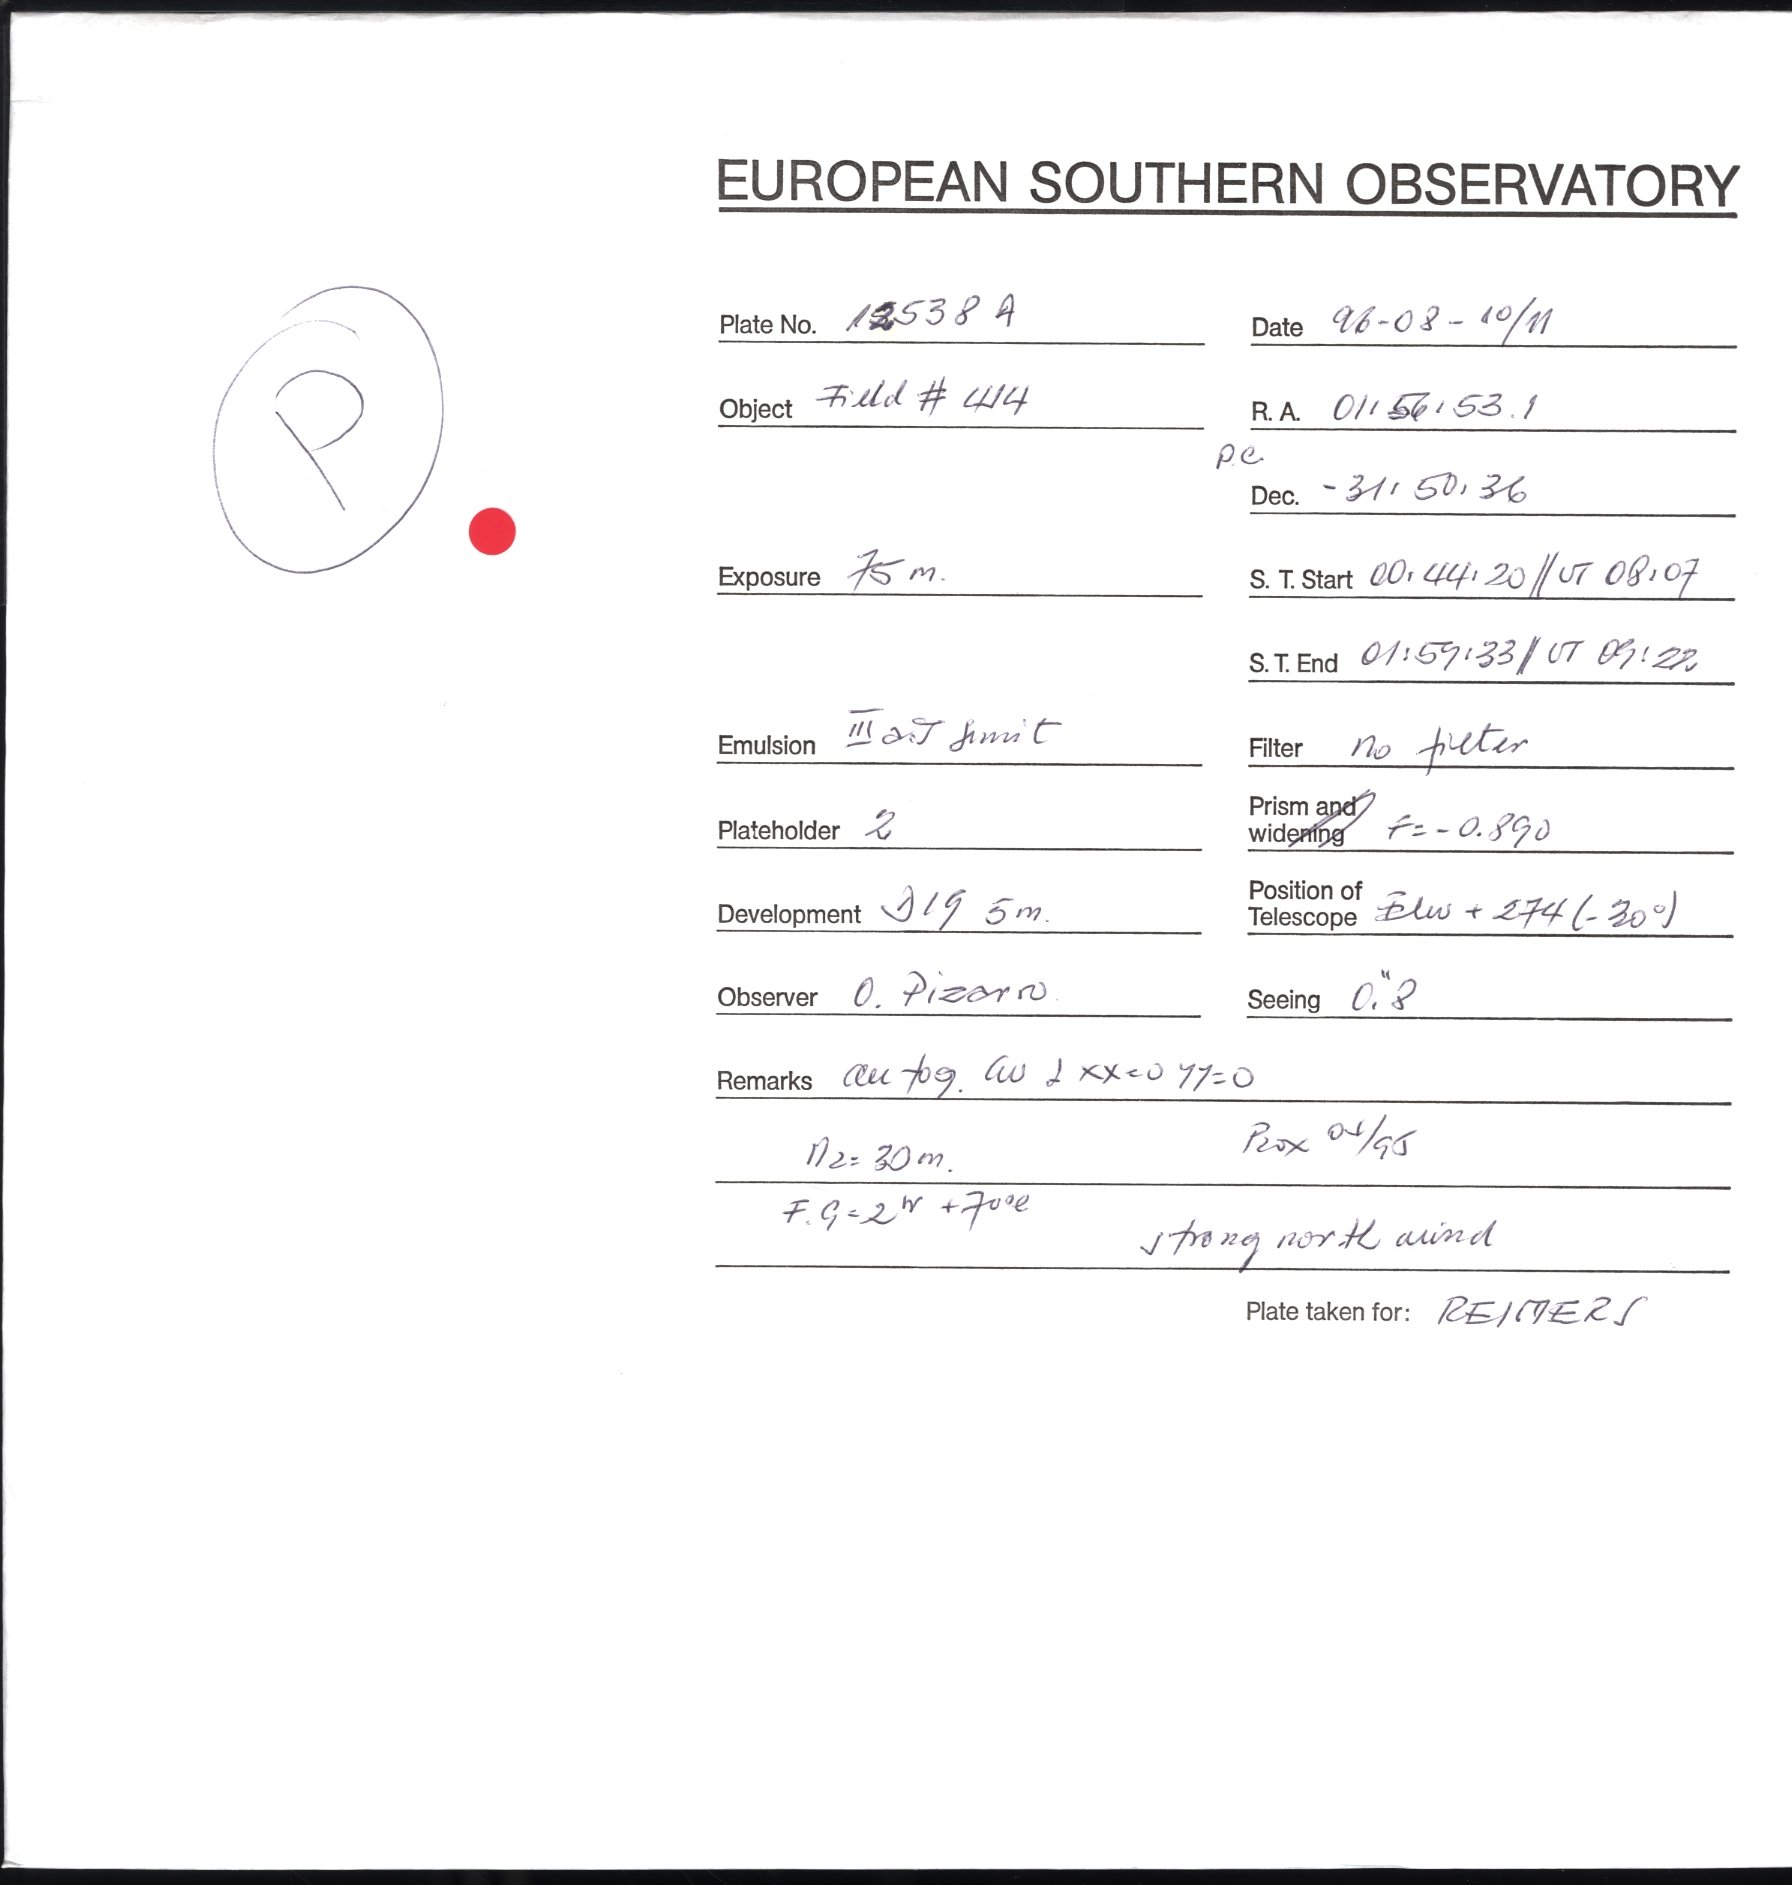 EUROPEAN SOUTHERN OBSERVATORY
P
Plate No. 12538 A
Date 96-08-10/11
Object Field # 414
R. A. 01:56:53.1
P.C.
Dec. -31:50:36
Exposure 75 m.
S. T. Start 00:44:20 // UT 08:07
S. T. End 01:59:33 // UT 09:22
Emulsion III aJ
Filter no filter
Plateholder 2
Prism and widening F= -0.890
Development D19 5m.
Position of Telescope + 274 (-30°)
Observer O. Pizarro
Seeing 0."8
Remarks xx=0 yy=0
= 30 m.
F.G = 2 + 7
strong north wind
Plate taken for: REIMERS